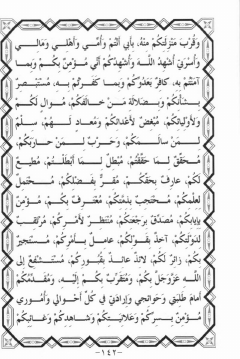 وَقُرْبَ مَنْزِلَتِكُمْ مِنْهُ، بِأَبِي أَنْتُمْ وَأُمِّي وَأَهْلِي وَمَالِي
وَأُسْرَتِي أُشْهِدُ اللهَ وَأُشْهِدُكُمْ أَنِّي مُؤْمِنٌ بِكُمْ وَبِمَا
آمَنْتُمْ بِهِ، كَافِرٌ بِعَدُوِّكُمْ وَبِمَا كَفَرْتُمْ بِهِ، مُسْتَبْصِرٌ
بِشَأْنِكُمْ وَبِضَلَالَةِ مَنْ خَالَفَكُمْ، مُوَالٍ لَكُمْ
وَلِأَوْلِيَائِكُمْ، مُبْغِضٌ لِأَعْدَائِكُمْ وَمُعَادٍ لَهُمْ، سِلْمٌ
لِمَنْ سَالَمَكُمْ، وَحَرْبٌ لِمَنْ حَارَبَكُمْ،
مُحَقِّقٌ لِمَا حَقَّقْتُمْ، مُبْطِلٌ لِمَا أَبْطَلْتُمْ، مُطِيعٌ
لَكُمْ، عَارِفٌ بِحَقِّكُمْ، مُقِرٌّ بِفَضْلِكُمْ، مُحْتَمِلٌ
لِعِلْمِكُمْ، مُحْتَجِبٌ بِذِمَّتِكُمْ، مُعْتَرِفٌ بِكُمْ، مُؤْمِنٌ
بِإِيَابِكُمْ، مُصَدِّقٌ بِرَجْعَتِكُمْ، مُنْتَظِرٌ لِأَمْرِكُمْ، مُرْتَقِبٌ
لِدَوْلَتِكُمْ، آخِذٌ بِقَوْلِكُمْ، عَامِلٌ بِأَمْرِكُمْ، مُسْتَجِيرٌ
بِكُمْ، زَائِرٌ لَكُمْ، لَائِذٌ عَائِذٌ بِقُبُورِكُمْ، مُسْتَشْفِعٌ إِلَى
اللهِ عَزَّ وَجَلَّ بِكُمْ، وَمُتَقَرِّبٌ بِكُمْ إِلَيْهِ، وَمُقَدِّمُكُمْ
أَمَامَ طَلِبَتِي وَحَوَائِجِي وَإِرَادَتِي فِي كُلِّ أَحْوَالِي وَأُمُورِي
مُؤْمِنٌ بِسِرِّكُمْ وَعَلَانِيَتِكُمْ وَشَاهِدِكُمْ وَغَائِبِكُمْ
-١٤٢-